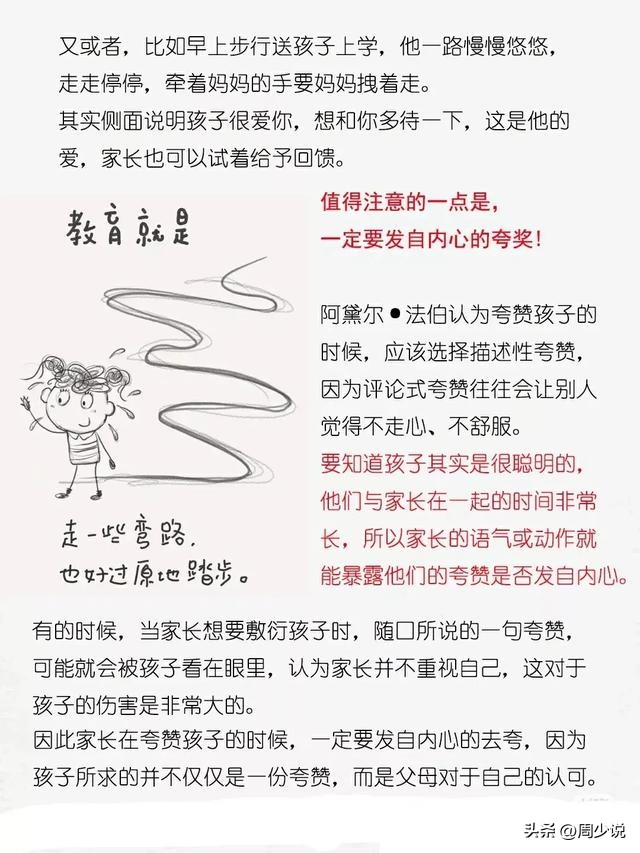 又或者，比如早上步行送孩子上学，他一路慢慢悠悠，
走走停停，牵着妈妈的手要妈妈拽着走。
其实侧面说明孩子很爱你，想和你多待一下，这是他的
爱，家长也可以试着给予回馈。
教育就是
走一些弯路，
也好过原地踏步。
值得注意的一点是，
一定要发自内心的夸奖！
阿黛尔●法伯认为夸赞孩子的
时候，应该选择描述性夸赞，
因为评论式夸赞往往会让别人
觉得不走心、不舒服。
要知道孩子其实是很聪明的，
他们与家长在一起的时间非常
长，所以家长的语气或动作就
能暴露他们的夸赞是否发自内心。
有的时候，当家长想要敷衍孩子时，随口所说的一句夸赞，
可能就会被孩子看在眼里，认为家长并不重视自己，这对于
孩子的伤害是非常大的。
因此家长在夸赞孩子的时候，一定要发自内心的去夸，因为
孩子所求的并不仅仅是一份夸赞，而是父母对于自己的认可。
头条 @周少说